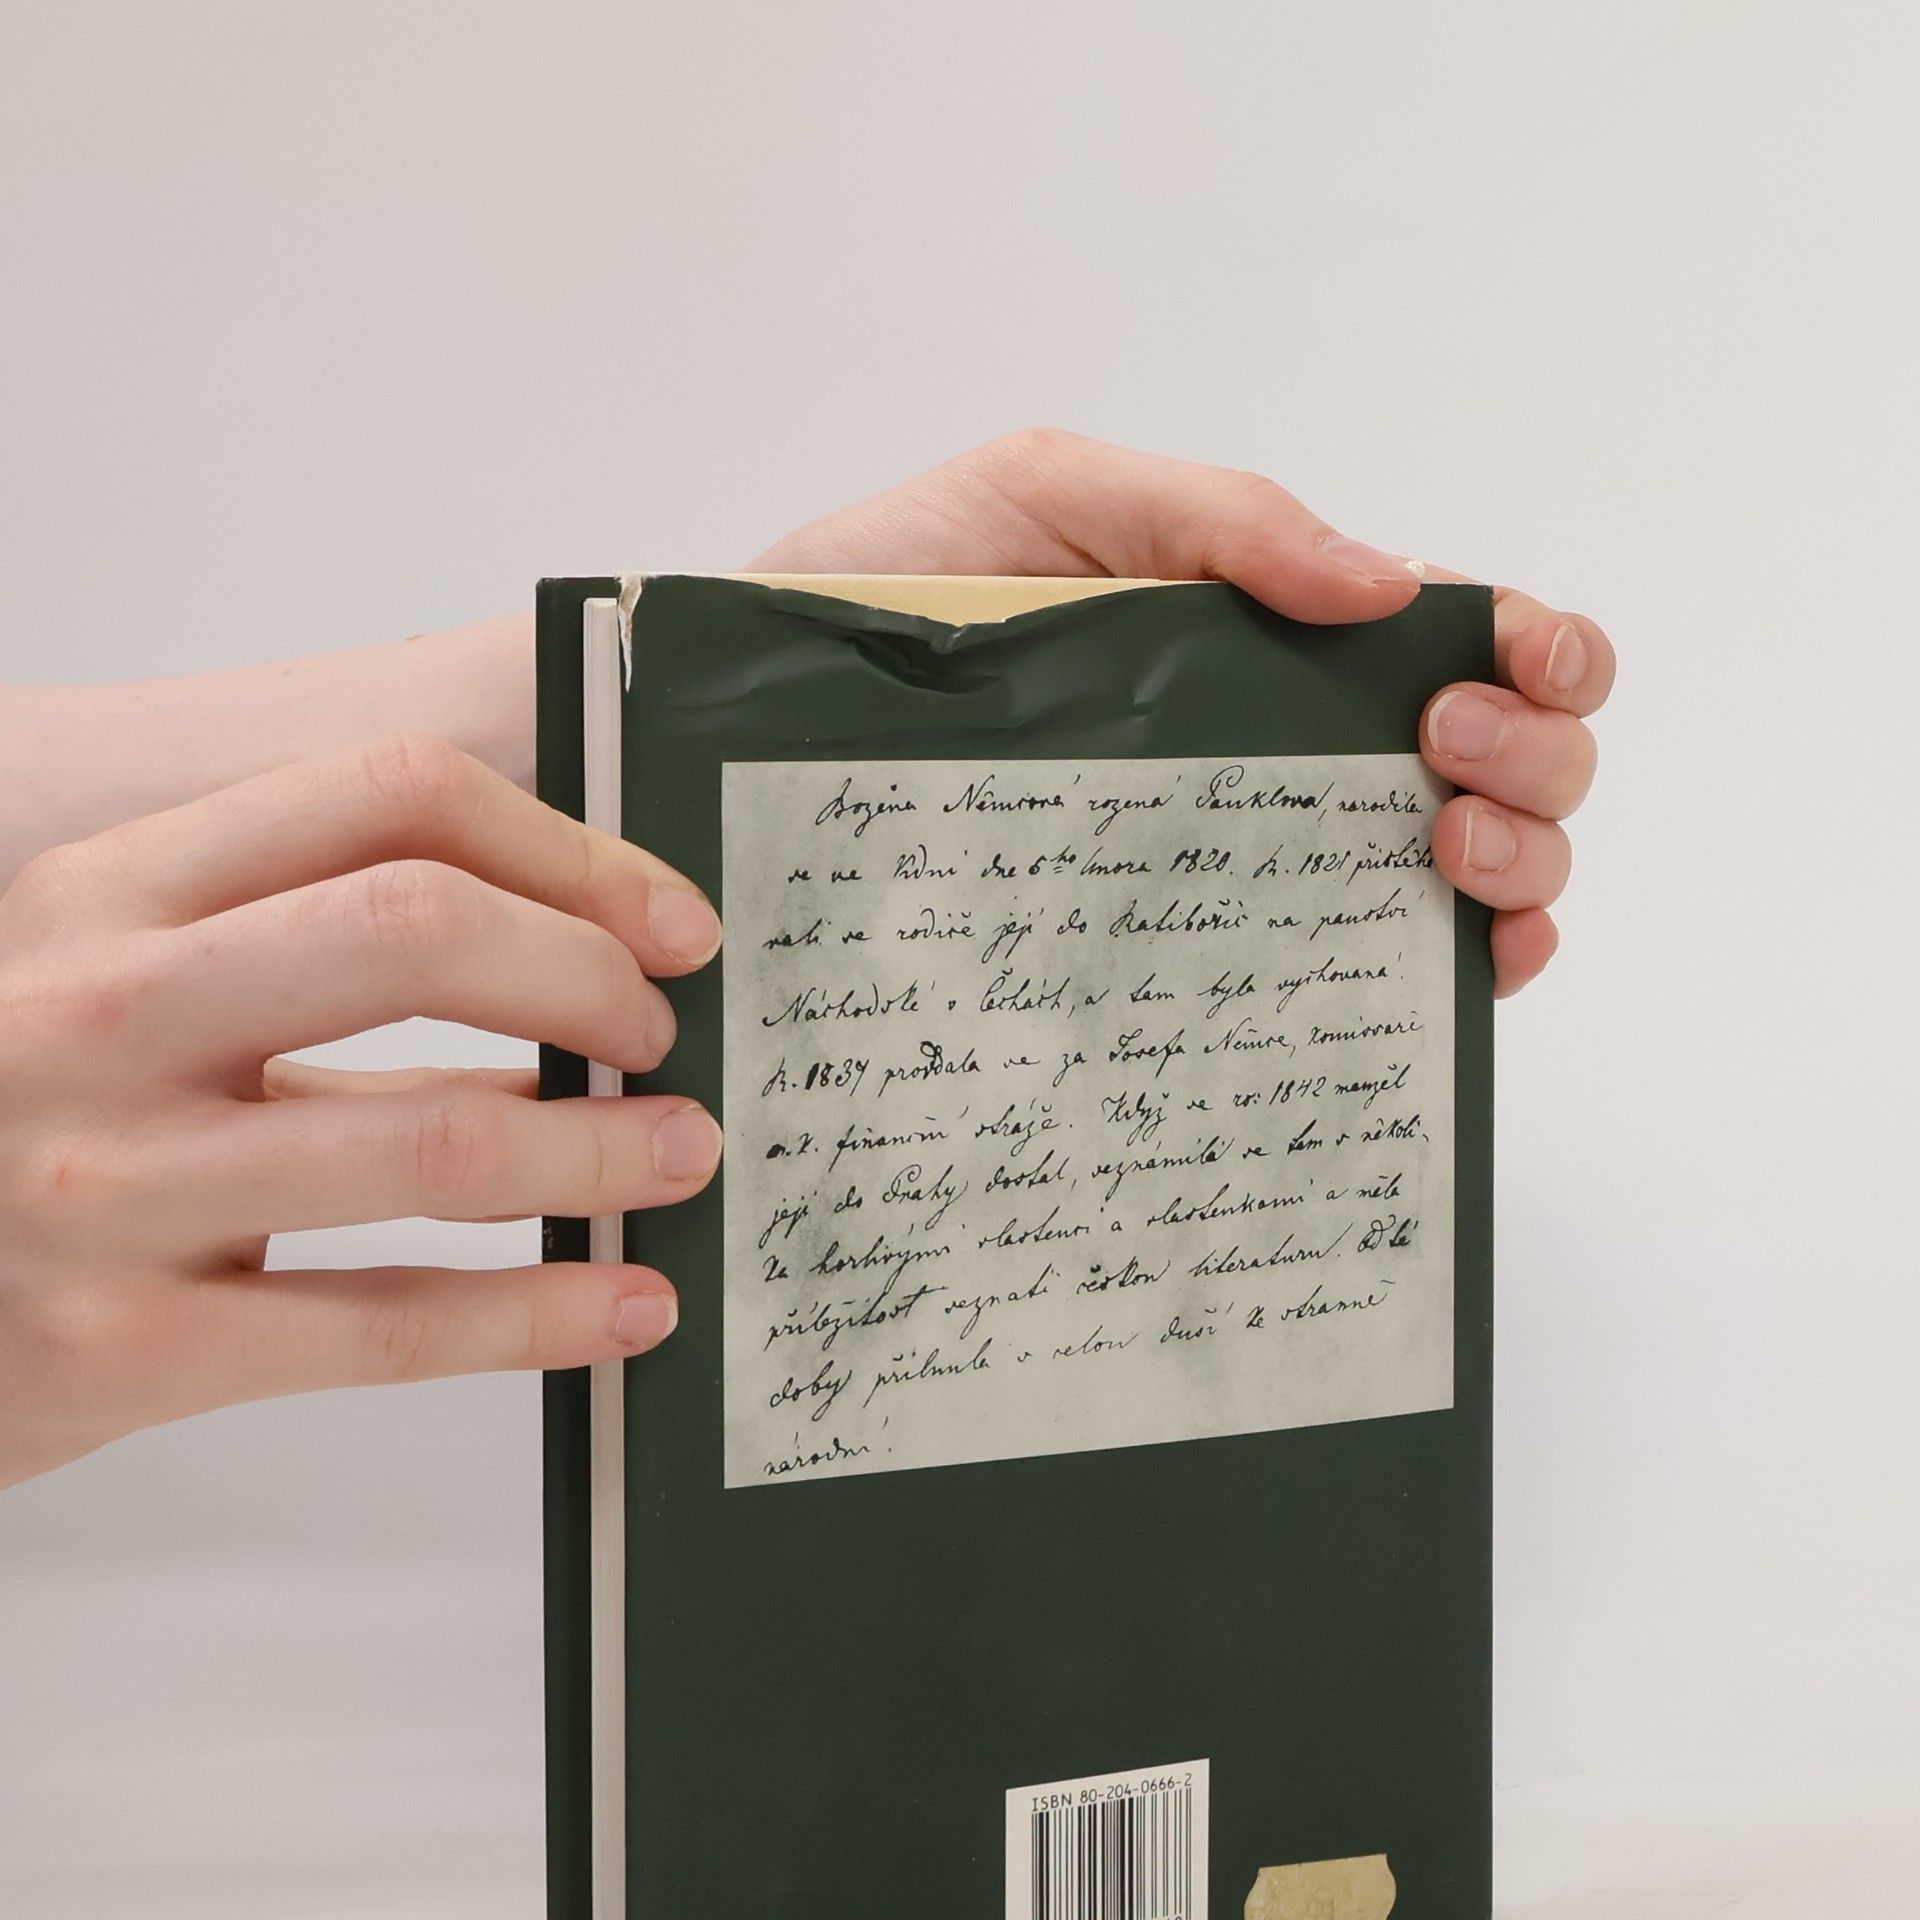 Božena Němcová rozená Panklova, narodila
se ve Vídni dne 5ho února 1820. R. 1821 přistěho
vali se rodiče její do Ratibořic na panství
Náchodské v Čechách, a tam byla vychovaná.
R. 1837 provdala se za Josefa Němce, komissaře
c. k. finanční stráže. Když se ro: 1842 manžel
její do Prahy dostal, seznámila se tam s několi-
ka horlivými vlastenci a vlastenkami a měla
příležitost seznati českou literaturu. Od té
doby přilnula s celou duší ke straně
národní.
ISBN 80-204-0666-2